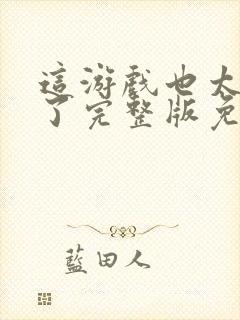 這游戲也太
了完整版免
藍田人